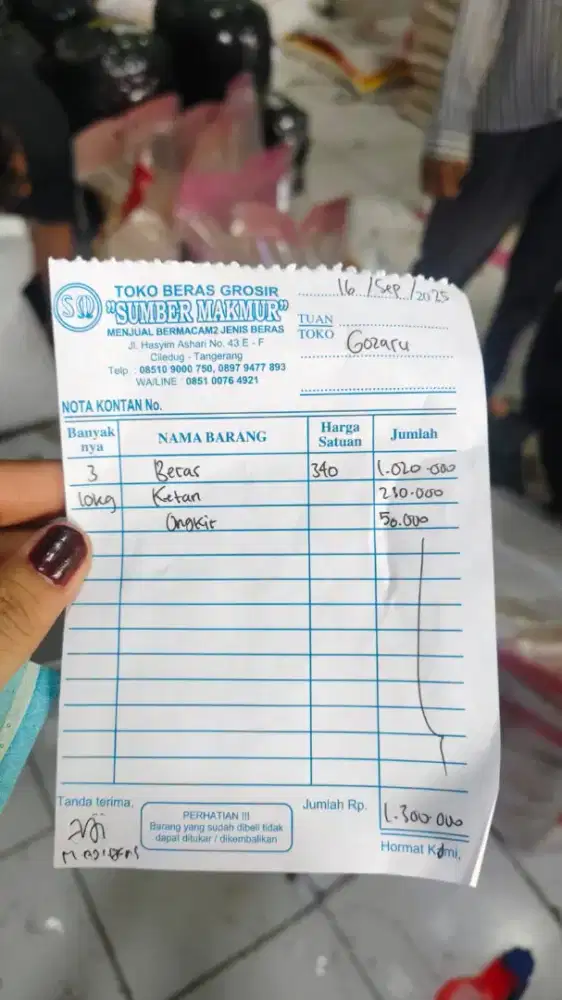 TOKO BERAS GROSIR
SM "SUMBER MAKMUR"
MENJUAL BERMACAM2 JENIS BERAS
Jl. Hasyim Ashari No. 43 E - F
Ciledug - Tangerang
Telp : 08510 9000 750, 0897 9477 893
WA/LINE : 0851 0076 4921
16 / Sep / 2025
TUAN
TOKO Gozaru
NOTA KONTAN No.
Banyak nya NAMA BARANG Harga Satuan Jumlah
3 Beras 340 1.020.000
10kg Ketan 230.000
Ongkir 50.000
Tanda terima,
PERHATIAN !!!
Barang yang sudah dibeli tidak
dapat ditukar / dikembalikan
Jumlah Rp. 1.300.000
Hormat Kami,